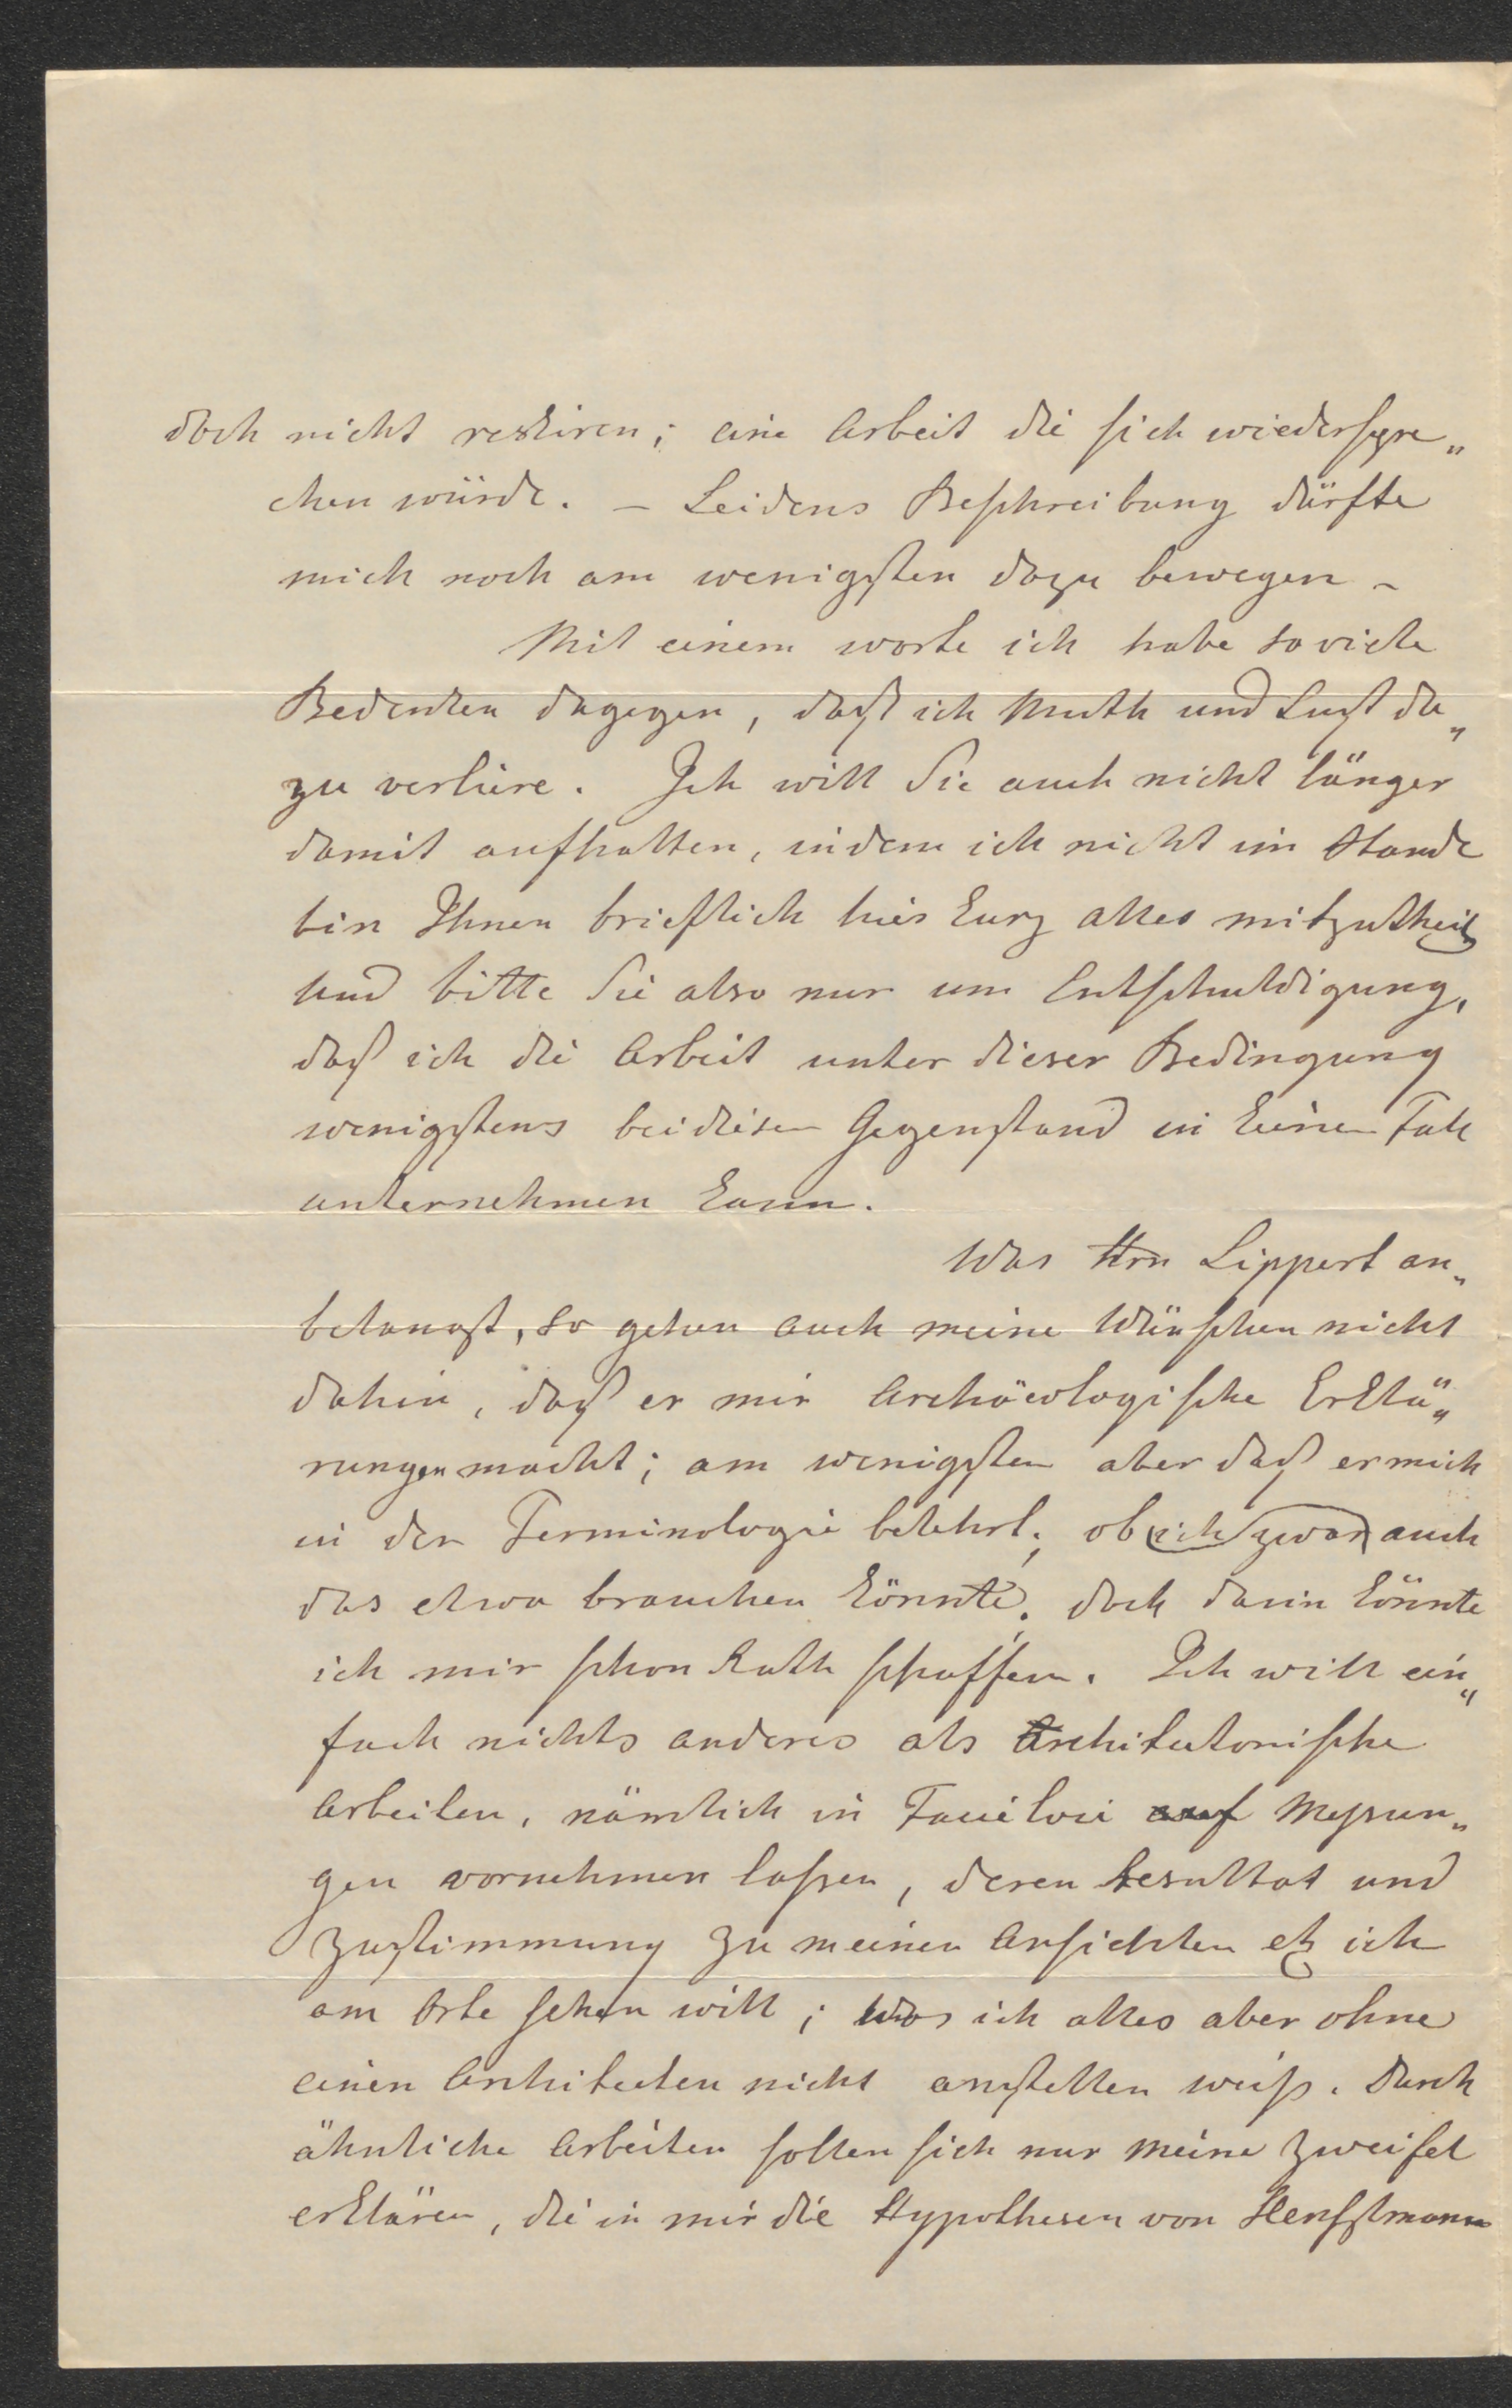 doch nicht reskiren; eine Arbeit die sich wiederspre„
chen würde. – Leidens Beschreibung dürfte
mich noch am wenigsten dazu bewegen –
Mit einem worte ich habe so viele
Bedenken dagegen, daß ich Muth und Lust da„
zu verliere. Ich will Sie auch nicht länger
damit aufhalten, indem ich nicht im Stande
bin Ihnen brieflich hier kurz alles mitzutheilen
und bitte Sie also nur um Entschuldigung,
daß ich die Arbeit unter dieser Bedingung
wenigstens bei diesem Gegenstand in keinen Fall
unternehmen kann.
Was Hrn Lippert an„
belangt, so gehen auch meine Wünschen nicht
dahin, daß er mir Archäeologische Erklä„
rungen macht; am wenigsten aber daß er mich
in der Terminologie belehrt; ob ich zwar auch
das etwa brauchen könnte. doch darin könnte
ich mir schon Rath schaffen. Ich will ein„
fach nichts anderes als Architectonische
Arbeiten, nämlich in Topuscke Messun„
gen vornehmen lassen, deren Resultat und
Zustimmung zu meinen Ansichten etz ich
am Orte sehen will; was ich alles aber ohne
einen Architecten nicht anstellen weiß. Durch
ähnliche Arbeiten sollen sich nur meine Zweifel
erklären, die in mir die Hypothesen von Henszlmann